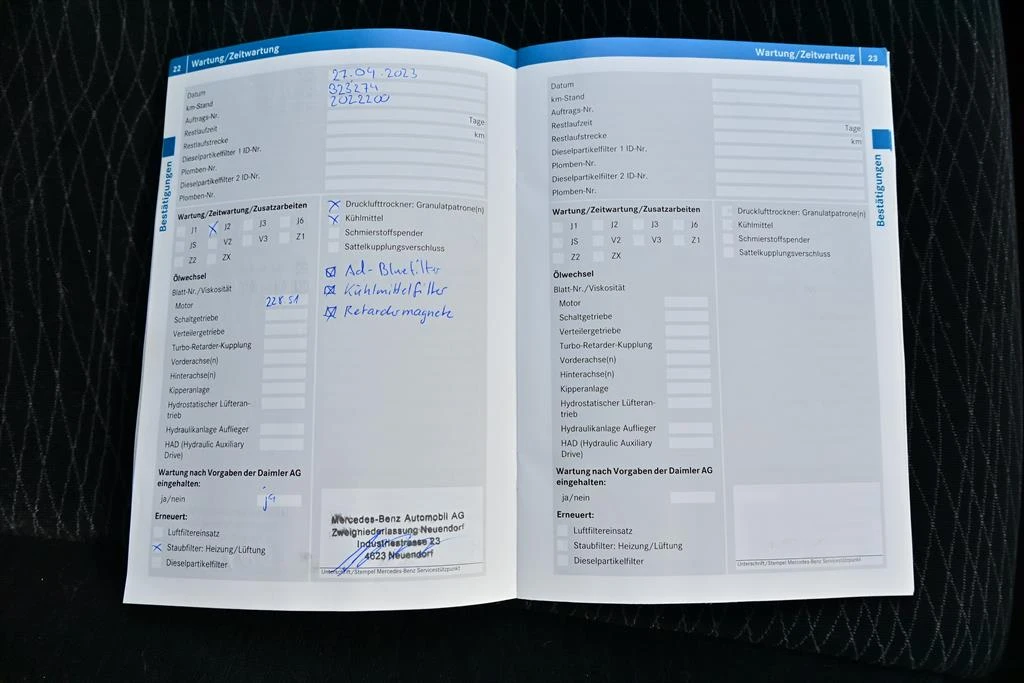 22 Wartung/Zeitwartung
Bestätigungen
Datum 27.04.2023
km-Stand 323'274
Auftrags-Nr. 2022200
Restlaufzeit Tage
Restlaufstrecke km
Dieselpartikelfilter 1 ID-Nr.
Plomben-Nr.
Dieselpartikelfilter 2 ID-Nr.
Plomben-Nr.
Wartung/Zeitwartung/Zusatzarbeiten
J1 J2 J3 J6
JS V2 V3 Z1
Z2 ZX
Ölwechsel
Blatt-Nr./Viskosität
Motor 228.51
Schaltgetriebe
Verteilergetriebe
Turbo-Retarder-Kupplung
Vorderachse(n)
Hinterachse(n)
Kipperanlage
Hydrostatischer Lüfteran-
trieb
Hydraulikanlage Auflieger
HAD (Hydraulic Auxiliary
Drive)
Wartung nach Vorgaben der Daimler AG
eingehalten:
ja/nein ja
Erneuert:
Luftfiltereinsatz
Staubfilter: Heizung/Lüftung
Dieselpartikelfilter
Drucklufttrockner: Granulatpatrone(n)
Kühlmittel
Schmierstoffspender
Sattelkupplungsverschluss
Ad-Bluefilter
Kühlmittelfilter
Retardermagnete
Mercedes-Benz Automobil AG
Zweigniederlassung Neuendorf
Industriestrasse 23
4623 Neuendorf
Unterschrift/Stempel Mercedes-Benz Servicestützpunkt
Wartung/Zeitwartung 23
Bestätigungen
Datum
km-Stand
Auftrags-Nr.
Restlaufzeit Tage
Restlaufstrecke km
Dieselpartikelfilter 1 ID-Nr.
Plomben-Nr.
Dieselpartikelfilter 2 ID-Nr.
Plomben-Nr.
Wartung/Zeitwartung/Zusatzarbeiten
J1 J2 J3 J6
JS V2 V3 Z1
Z2 ZX
Ölwechsel
Blatt-Nr./Viskosität
Motor
Schaltgetriebe
Verteilergetriebe
Turbo-Retarder-Kupplung
Vorderachse(n)
Hinterachse(n)
Kipperanlage
Hydrostatischer Lüfteran-
trieb
Hydraulikanlage Auflieger
HAD (Hydraulic Auxiliary
Drive)
Wartung nach Vorgaben der Daimler AG
eingehalten:
ja/nein
Erneuert:
Luftfiltereinsatz
Staubfilter: Heizung/Lüftung
Dieselpartikelfilter
Drucklufttrockner: Granulatpatrone(n)
Kühlmittel
Schmierstoffspender
Sattelkupplungsverschluss
Unterschrift/Stempel Mercedes-Benz Servicestützpunkt